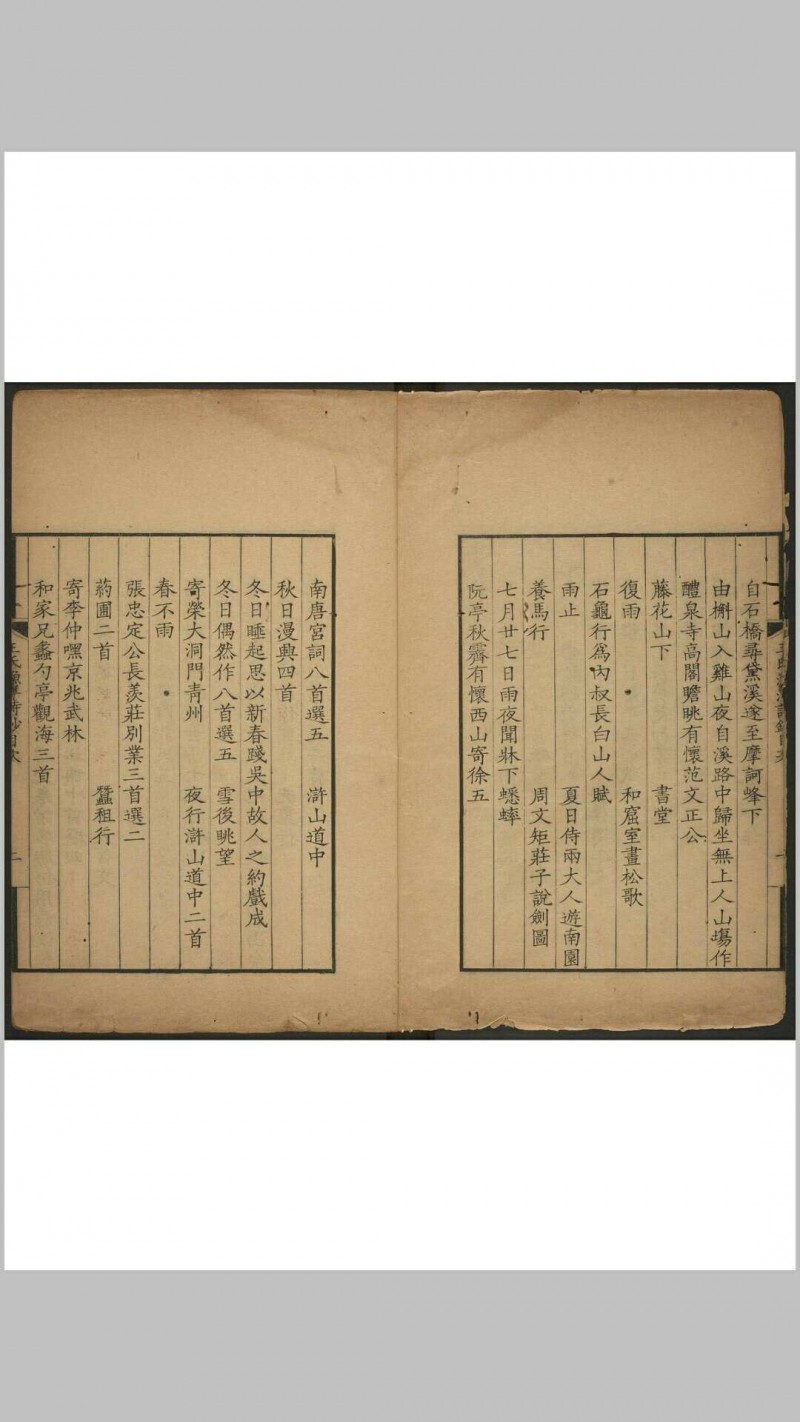 自石橋尋黛溪遂至摩訶峰下
由槲山入雞山夜自溪路中歸坐無上人山塲作
醴泉寺高閣瞻眺有懷范文正公
藤花山下　書堂
復雨　和窟室畫松歌
石龜行為內叔長白山人賦
雨止　夏日侍兩大人遊南園
養馬行　周文矩莊子說劍圖
七月廿七日雨夜聞牀下蟋蟀
阮亭秋霽有懷西山寄徐五
南唐宮詞八首選五　滸山道中
秋日漫興四首
冬日睡起思以新春踐吳中故人之約戲成
冬日偶然作八首選五　雪後眺望
寄榮大洞門青州　夜行滸山道中二首
春不雨
張忠定公長羨莊別業三首選二
葯圃二首　蠶租行
寄李仲嘿京兆武林
和家兄蠡勺亭觀海三首